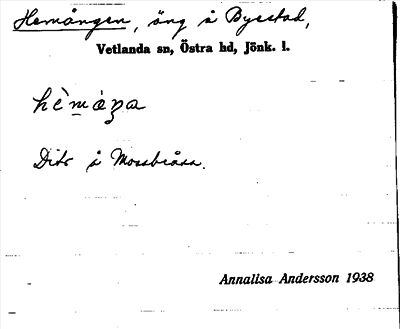 Hemången, äng å Byestad,
Vetlanda sn, Östra hd, Jönk. l.
Dito å Mossbråna.
Annalisa Andersson 1938